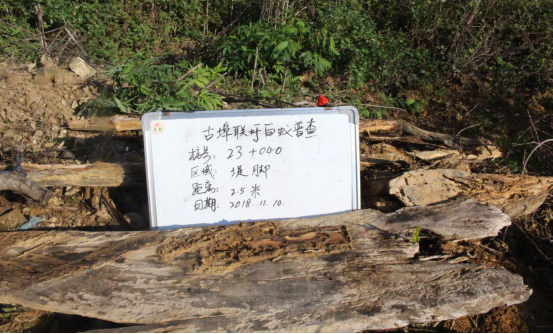 古埠联圩白蚁普查
桩号: 23+040
区域: 堤脚
距离: 2.5米
日期: 2018.11.10.